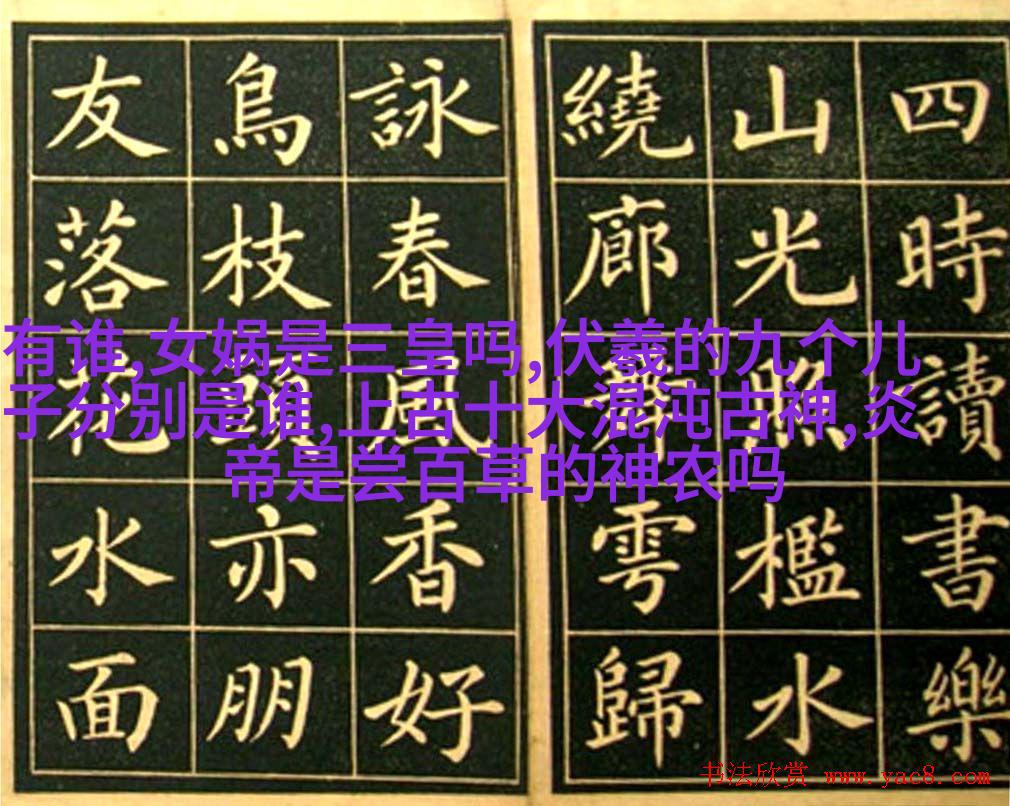 四時讀書樂
山光照檻水
繞廊舞雩歸
詠春風香好
鳥枝頭亦朋
友落花水面
有谁,女娲是三皇吗,伏羲的九个儿
子分别是谁,上古十大混沌古神,炎
帝是尝百草的神农吗
书法欣赏 www.yac8.com